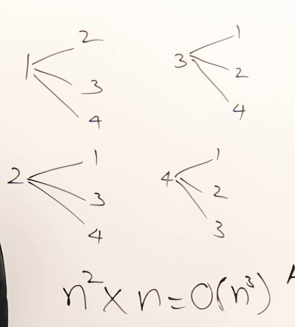 1 2 3 4
3 1 2 4
2 1 3 4
4 1 2 3
n² × n = O(n³)